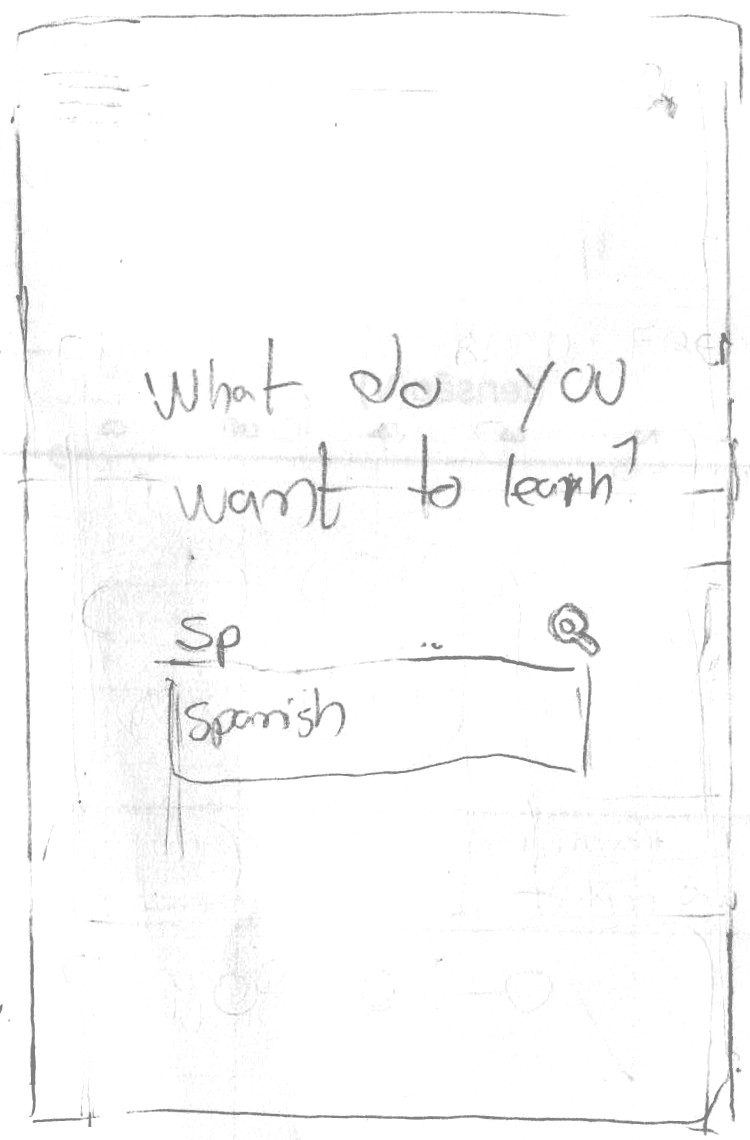 What do you
want to learn?
Sp
Spanish